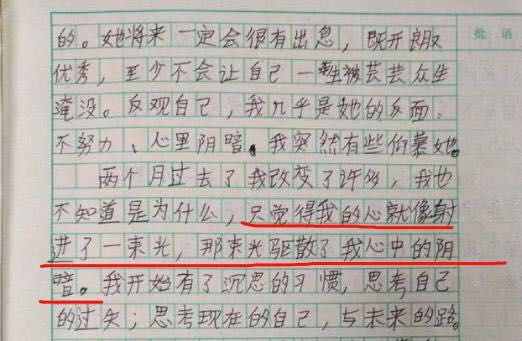 批语
的。她将来一定会很有出息，既开朗又
优秀，至少不会让自己一生被芸芸众生
淹没。反观自己，我几乎是她的反面：
不努力、心里阴暗。我突然有些仰慕她。
两个月过去了我改变了许多，我也
不知道是为什么，只觉得我的心就像射
进了一束光，那束光驱散了我心中的阴
暗。我开始有了沉思的习惯，思考自己
的过失；思考现在的自己，与未来的路。